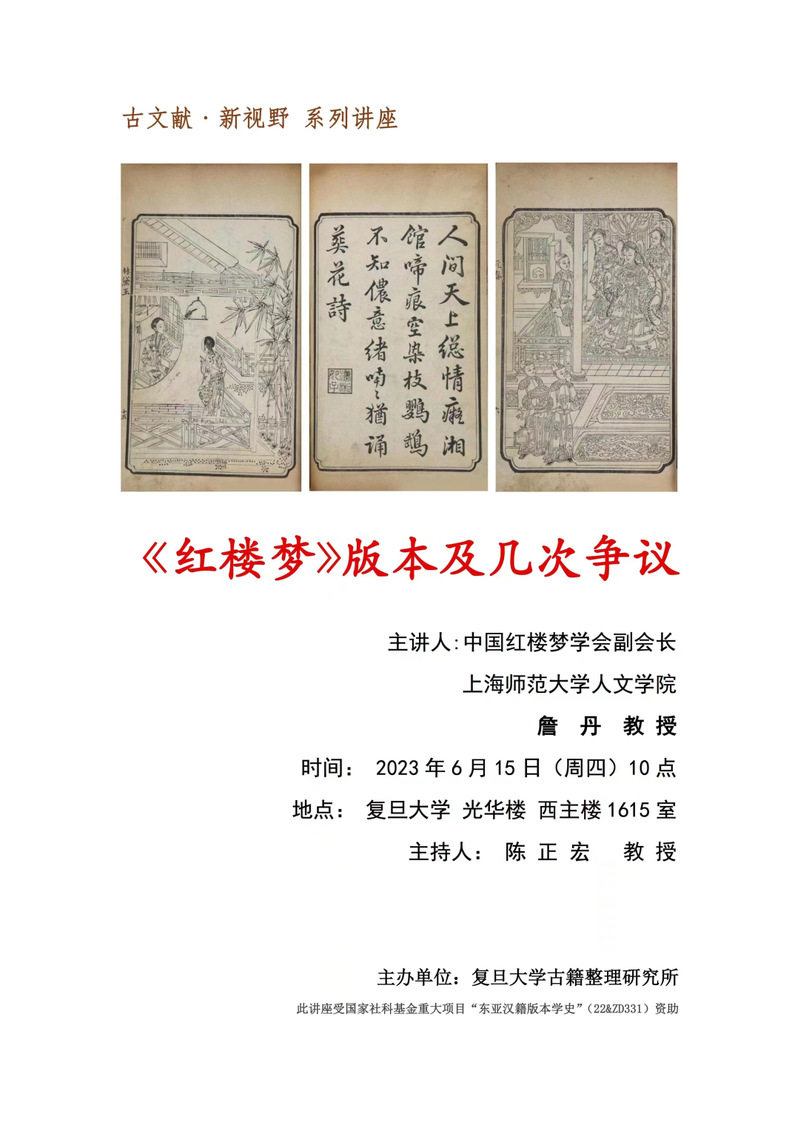 古文献·新视野 系列讲座
林黛玉
人间天上緫情癡湘
馆啼痕空染枝鹦鵡
不知儂意绪喃〻猶诵
葵花詩
《红楼梦》版本及几次争议
主讲人:中国红楼梦学会副会长
上海师范大学人文学院
詹 丹 教 授
时间： 2023 年 6 月 15 日（周四）10 点
地点： 复旦大学 光华楼 西主楼 1615 室
主持人： 陈 正 宏 教 授
主办单位：复旦大学古籍整理研究所
此讲座受国家社科基金重大项目“东亚汉籍版本学史”（22&ZD331）资助